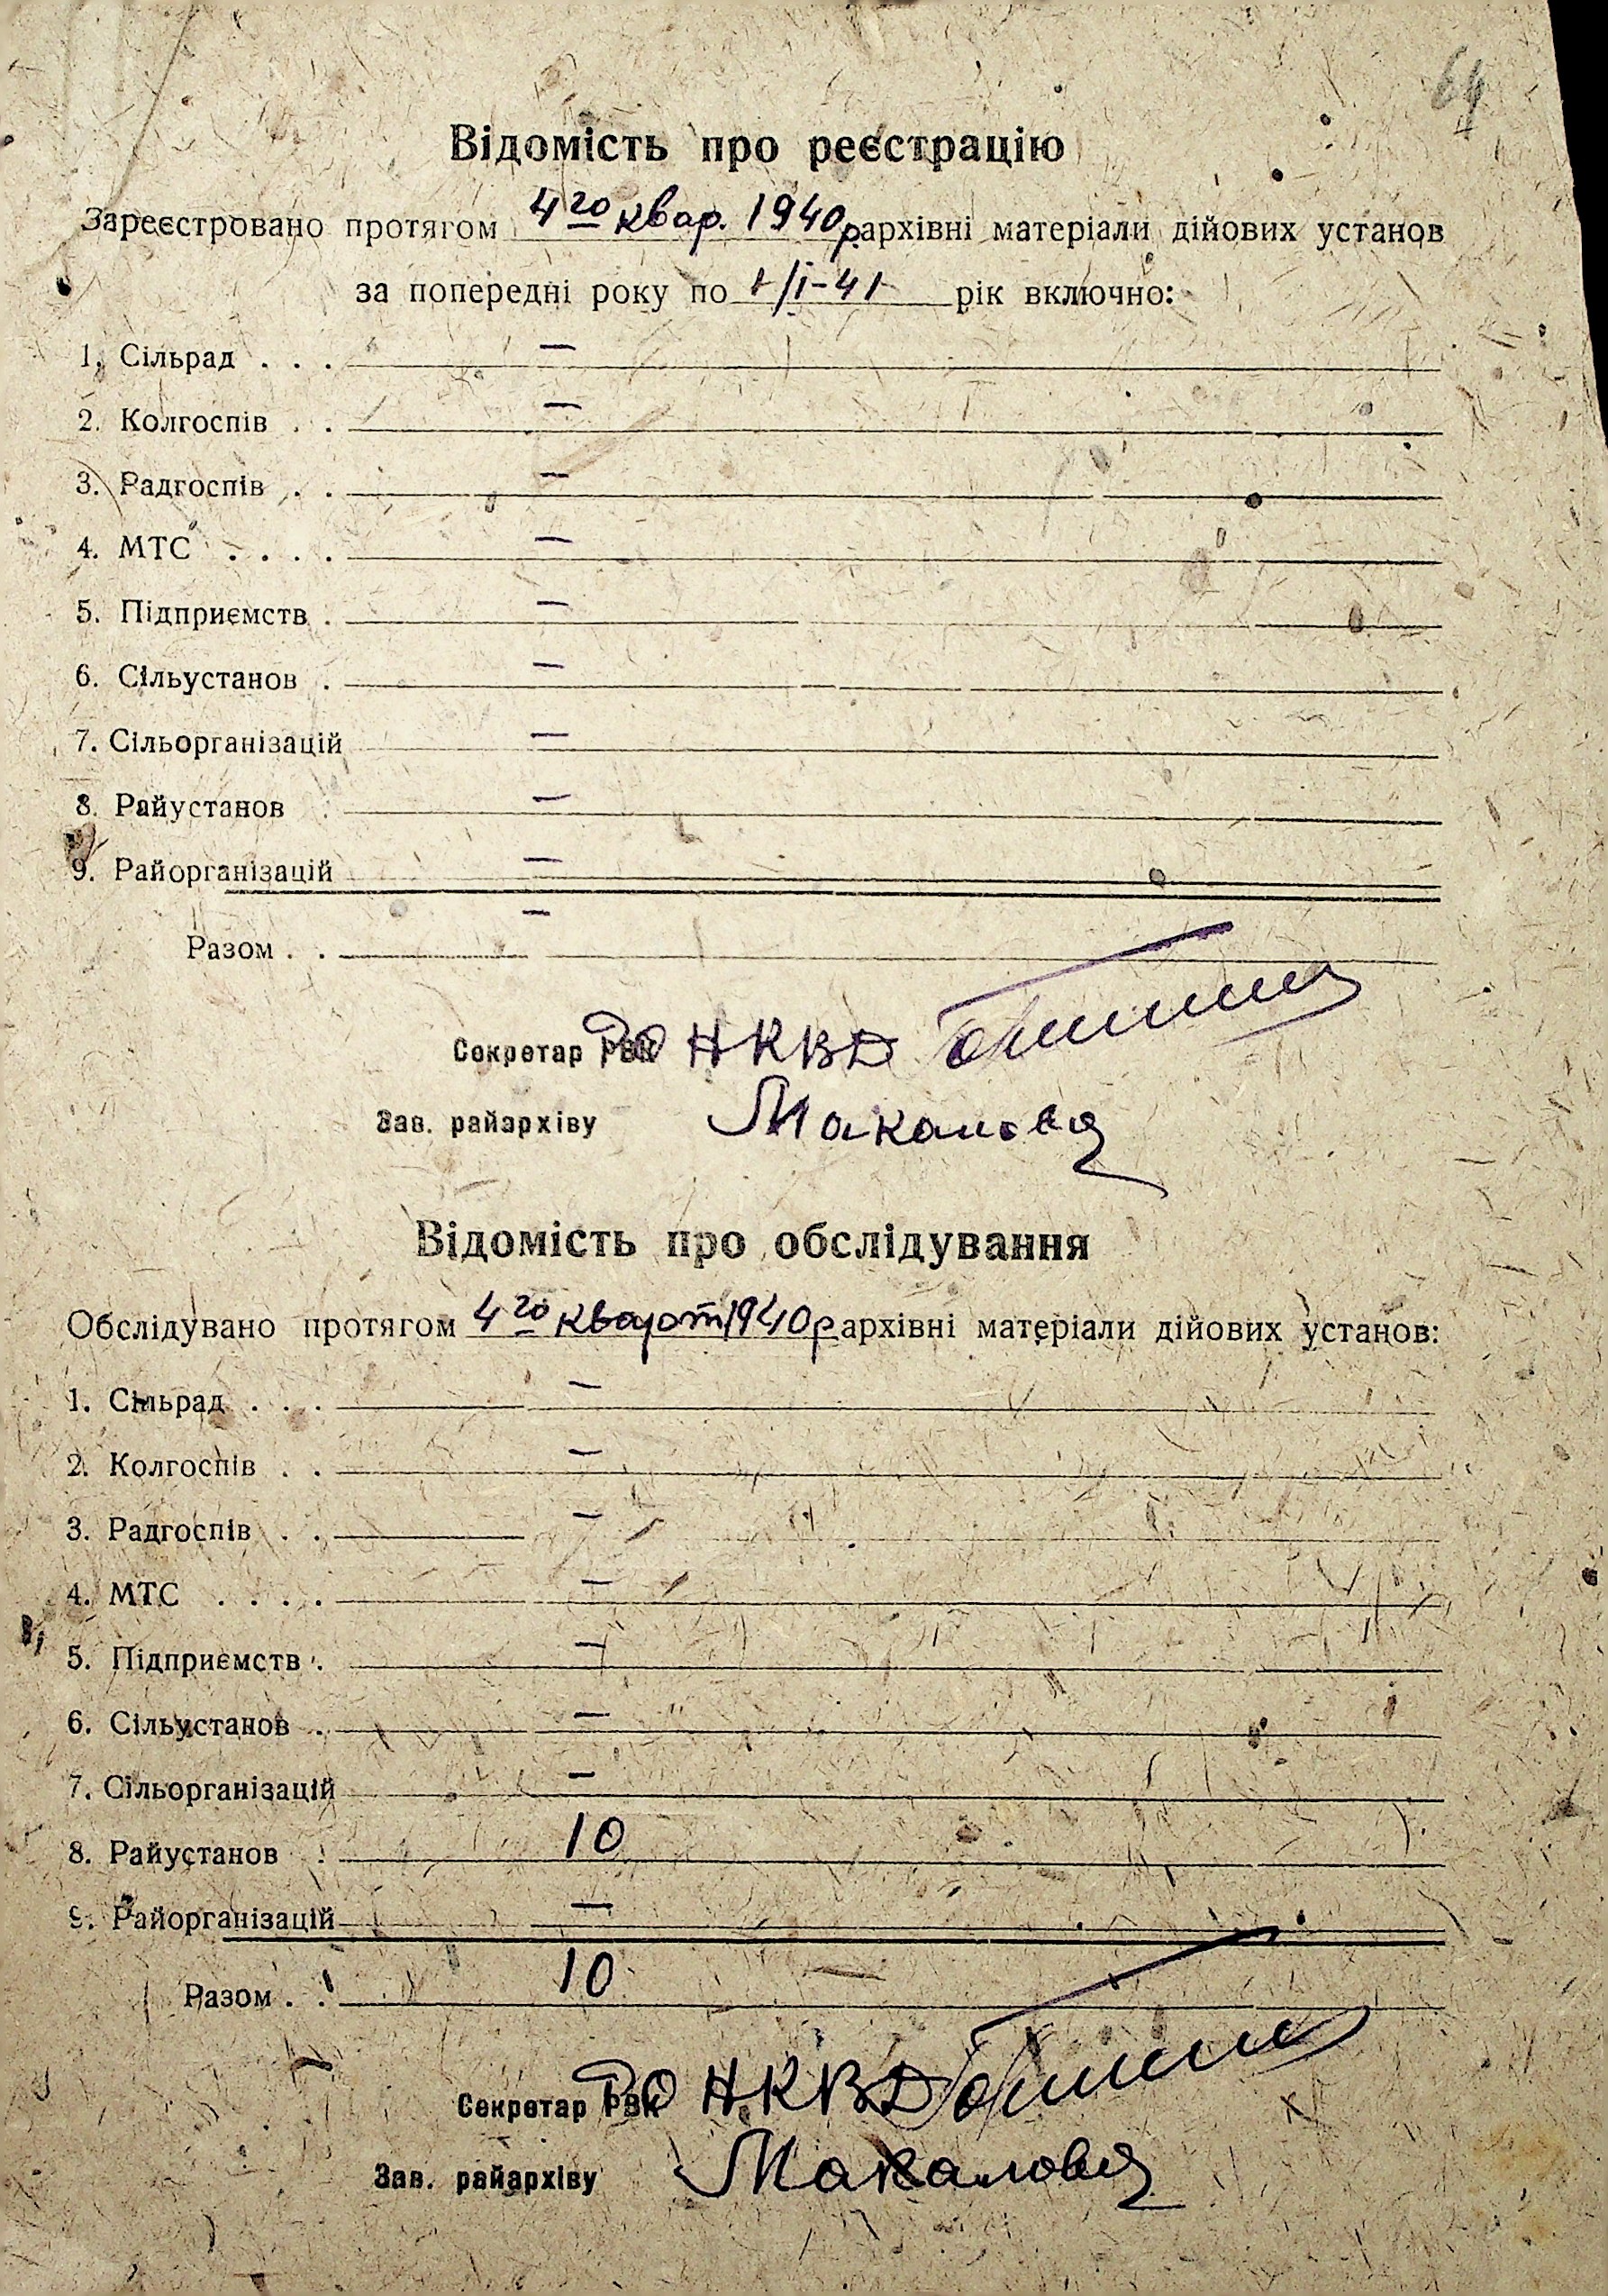 64
Відомість про реєстрацію
Зареєстровано протягом 4го квар. 1940р архівні матеріали дійових установ
за попередні року по 1/I-41 рік включно:
1. Сільрад . . . —
2. Колгоспів . . —
3. Радгоспів . . —
4. МТС . . . . —
5. Підприємств . —
6. Сільустанов . —
7. Сільорганізацій —
8. Райустанов . —
9. Райорганізацій —
Разом . . —
Секретар РВК РО НКВД
Зав. райархіву
Відомість про обслідування
Обслідувано протягом 4го кварт 1940р архівні матеріали дійових установ:
1. Сільрад . . . —
2. Колгоспів . . —
3. Радгоспів . . —
4. МТС . . . . —
5. Підприємств . —
6. Сільустанов . —
7. Сільорганізацій —
8. Райустанов . 10
9. Райорганізацій —
Разом . . 10
Секретар РВК РО НКВД
Зав. райархіву